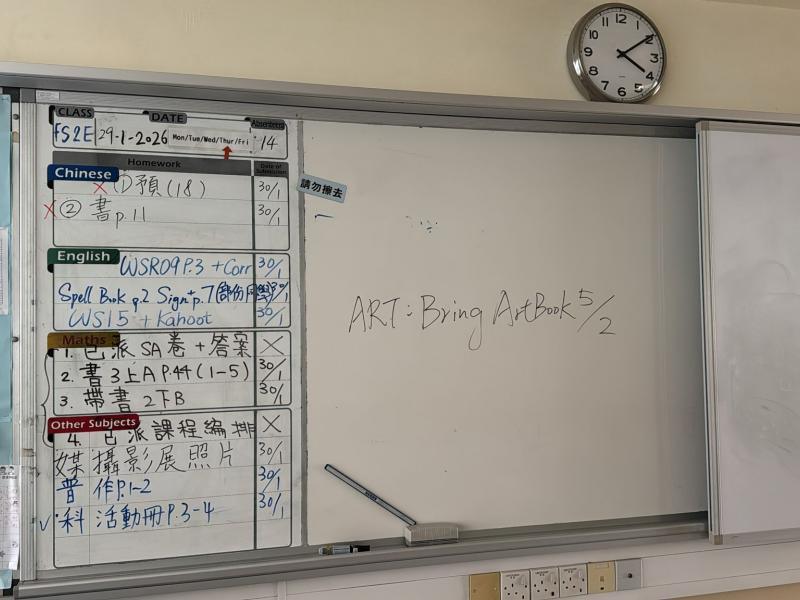 CLASS DATE Absentees
FS2E 29-1-2026 Mon/Tue/Wed/Thur/Fri 14
Homework Date of Submission
Chinese
① 預(18) 30/1
② 書p.11 30/1
請勿擦去
English
WSR09 P.3 + Corr 30/1
Spell Book p.2 Sign + p.7 (部份同學) 30/1
WS15 + Kahoot 30/1
ART: Bring ArtBook 5/2
Maths
1. 已派 SA 卷 + 答案 X
2. 書3上A P.44 (1-5) 30/1
3. 帶書 2下B 30/1
Other Subjects
4. 已派課程編排 X
媒 攝影展照片 30/1
普 作p.1-2 30/1
科 活動冊P.3-4 30/1
12 1 2 3 4 5 6 7 8 9 10 11